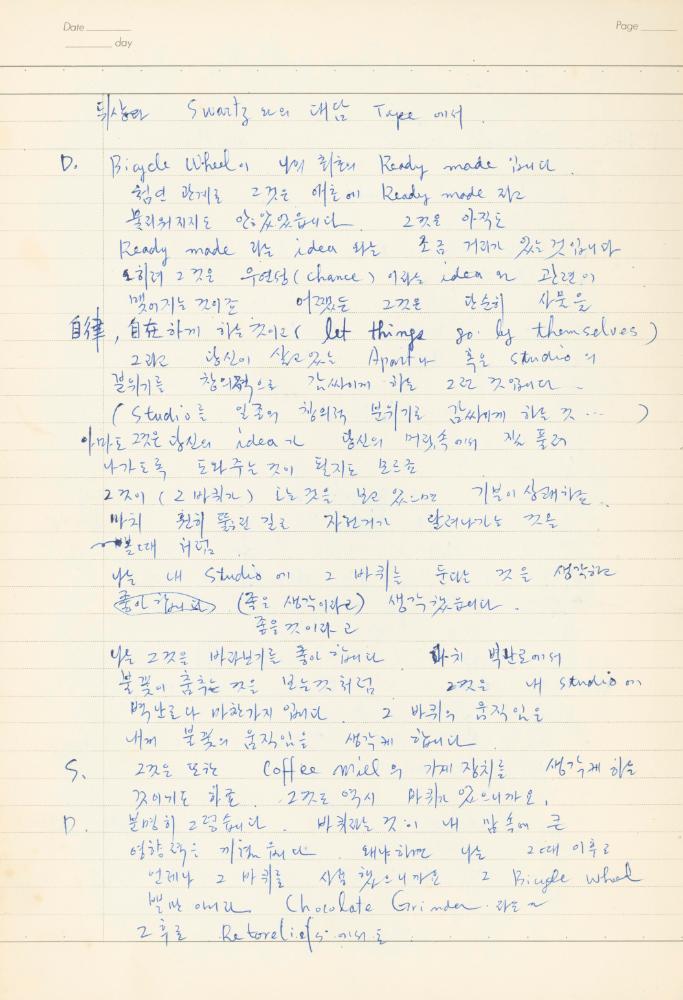 Date
Page
day
뒤샹과 Swartz 와의 대담 Tape 에서
D. Bicycle Wheel이 나의 최초의 Ready made 입니다
그것은 애초에 Ready made 라고
불리워지지도 안았었읍니다. 그것은 아직도
Ready made 라는 idea 와는 조금 거리가 있는 것입니다
오히려 그것은 우연성(chance)이라는 idea 와 관련이
맺어지는 것이죠 어쨌든 그것은 단순히 사물을
自律, 自在하게 하는 것이고 ( let things go by themselves )
그리고 당신이 살고 있는 Apart나 혹은 studio 의
분위기를 창의적으로 감싸이게 하는 그런 것입니다.
( Studio를 일종의 창의적 분위기로 감싸이게 하는 것 ... )
아마도 그것은 당신의 idea가 당신의 머릿속에서
나가도록 도와주는 것이 될지도 모르죠
그것이 ( 그 바퀴가 ) 도는 것을 보고 있으면 기분이 상쾌하죠
마치 훤히 뚫린 길로 자전거가 달려나가는 것을
볼 때 처럼
나는 내 Studio 에 그 바퀴를 둔다는 것을 생각하고
좋아합니다 (좋은 생각이라고) 생각했읍니다.
좋을 것이라고
나는 그것을 바라보기를 좋아합니다 마치 벽난로에서
불꽃이 춤추는 것을 보는 것 처럼 그것은 내 studio 의
벽난로나 마찬가지 입니다. 그 바퀴의 움직임은
내게 불꽃의 움직임을 생각케 합니다
S. 그것은 또한 Coffee mill 의 기계 장치를 생각케 하는
것이기도 하죠. 그것도 역시 바퀴가 있으니까요.
D. 분명히 그렇습니다. 바퀴라는 것이 내 맘 속에 큰
영향력을 끼쳤읍니다. 왜냐하면 나는 그때 이후로
언제나 그 바퀴를 사용했으니까요 그 Bicycle Wheel
뿐만 아니라 Chocolate Grinder 라든가
그 후로 Rotoreliefs 에서도